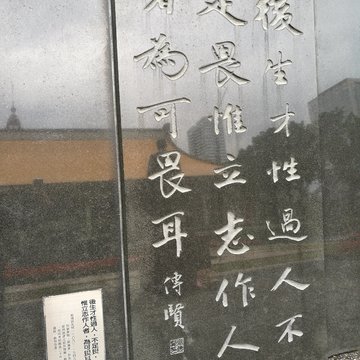 後生才性過人不
足畏惟立志作人
者為可畏耳
傅賢
後生才性過人,不足畏,
惟立志作人者,為可畏耳